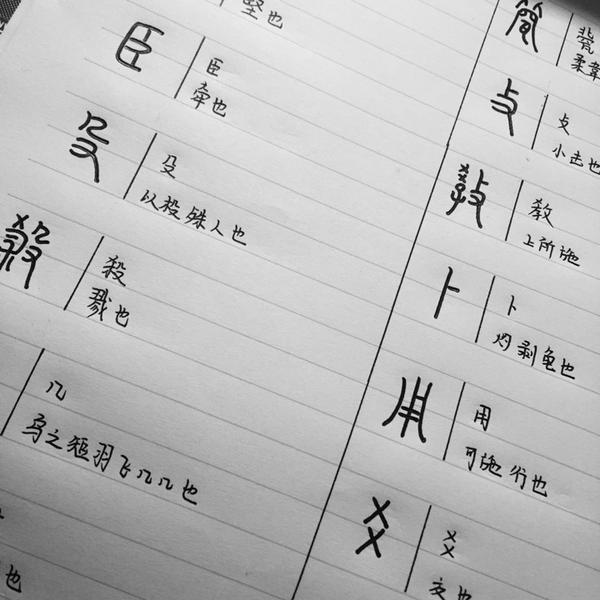 堅也
臣
臣
牵也
殳
殳
以投殊人也
殺
殺
戮也
几
鸟之短羽飞几几也
也
柔韋
攴
攴
小击也
教
教
上所施
卜
卜
灼剥龟也
用
用
可施行也
爻
爻
交也